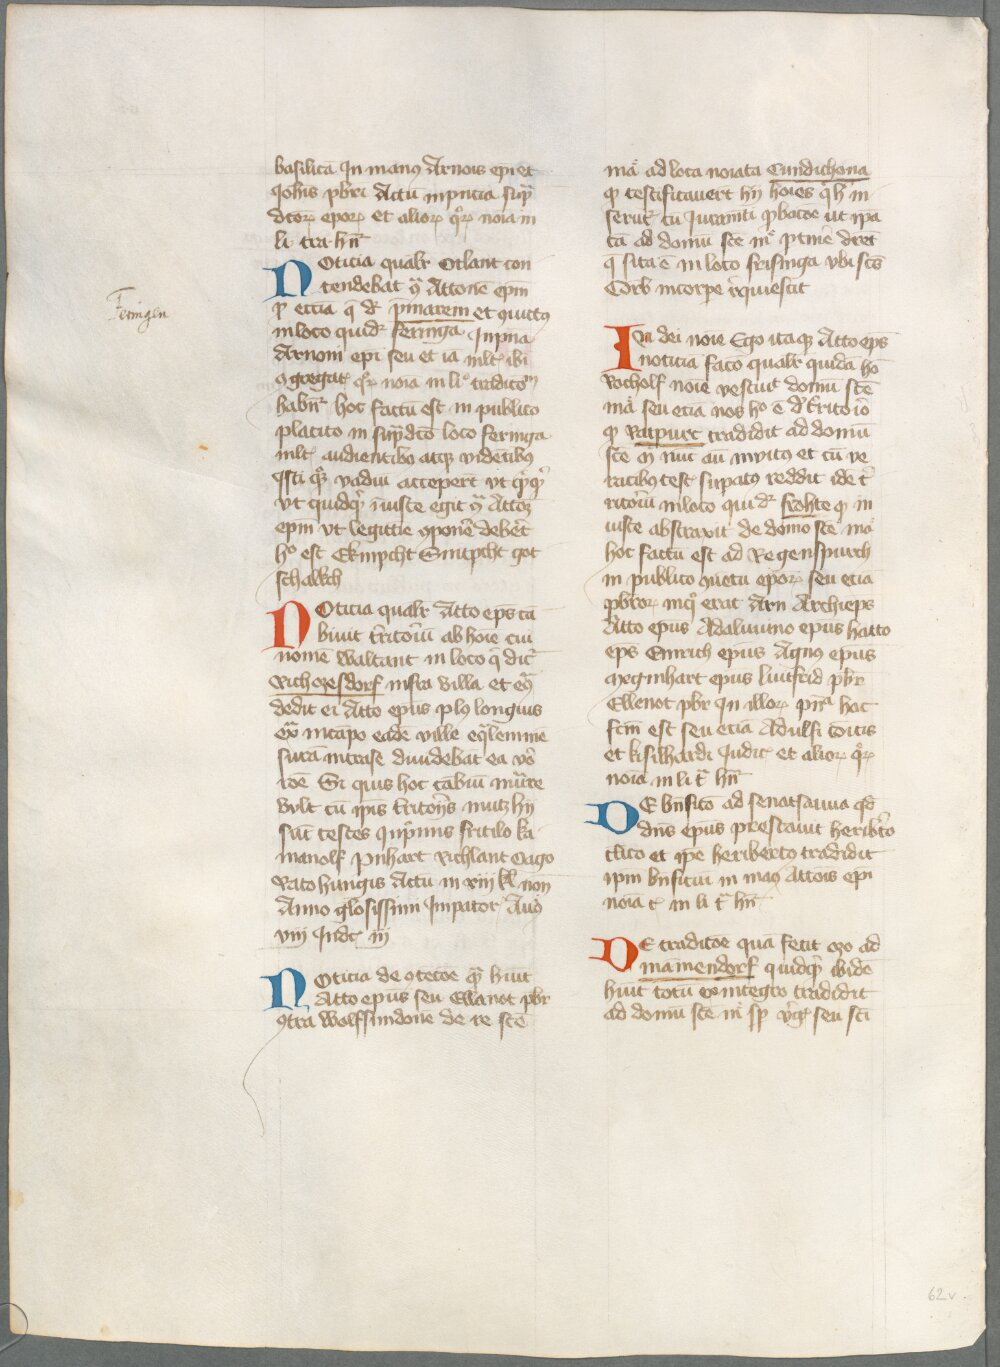 Feringen
basilicā In manꝯ Arnois ep̄i et
Qohis pbri Actū in pn̄cia sup̄
dctoꝝ epoꝝ et alioꝝ qͦꝝ noīa in
li tra hn̄t
Noticia qualr Otlant con
tendebat ꝯ̄ Attonē ep̄m
ꝑ ecc̄ia q̄ dr̄ pinarem et quittꝯ
in loco quidr̄ feringa Inp̄nia
Arnoni ep̄i seu et iā mlt̄ ibi
ꝯgregat̄ qͦꝝ noīa in li tradito
habn̄t hoc factū est in publico
placito in sup̄dc̄to loco feringa
mlt̄ audientibꝯ atqꝫ videtibꝯ
vadiu acceper̄t vt
vt quidqͥ iniuste egit ꝯ̄ Attoꝫ
ep̄m vt legittie ꝯponē deber̄t
hͦ est Ekinpcht Snitpcht got
schalkch
Noticia qualr Atto ep̄s cā
biuit t̄ritoriū ab hoīe cui
nomē Waltant in loco q̄ dic̄
Richozesdorf infra villa et
dedit ei Atto ep̄us plꝯ longius
in cāpo eadē ville
diuidebāt ea
Si quis hoc cābiū
vult cū ip̄is t̄ritoriis hij
sūt testes q inp̄mis fritilo ka
manolf pnhart Richlant Oago
Rato hungis Actū in xiij kl̄ non
Anno glosissimi Impator̄ Aug
viij Indc̄ iij
Noticia de ꝯtetōe quā hn̄it
Atto ep̄us seu Ellanot pbr
ꝯtra Wolffsimdone de re sc̄e
mā ad loca noīata Cundichoua
ꝙ testificauer̄t hij hoīes qͥ h in
serūt cū Iuramti ꝓbatōe ut ip̄a
cā ad domū sc̄e m̄ ꝑtinē dret
q̄ sita ē in loco frisinga vbi sc̄s
Corb in corpe r̄quiescit
In dei noīe Ego itaqꝫ Atto ep̄s
noticia facō qualr quidā hō
Rocholf noīe vestiuit domū sc̄e
mā seu ecia nos hͦ ē d t̄ritorio
ꝙ Ratpurc tradidit ad domū
sc̄e m̄ nūc aū inuitꝯ et cū ve
racibꝯ test̄ supatꝯ reddit idē t̄
ritoriū in loco qui dr̄ frohte ꝙ in
iuste abstraxit de domo sc̄e mā
hoc factū est ad Regenspurch
in publico ꝯuetu epoꝝ seu ecia
pbroꝝ inqͦ erat Arn Archiep̄s
Atto epus Adaluuino epus hatto
ep̄s Enrich epus Agnꝯ epus
Meginhart epus liutfrid pbr̄
Ellenot pbr̄ qn illoꝝ pn̄tā hoc
fcm̄ est seu eciā Adulfi comitis
et kisilhardi Iudic̄ et alioꝝ qͦꝝ
noīa in li t̄ hn̄t
De bn̄ficio ad senatsauua qd̄
dn̄s epus prestauit heribto
clico et ip̄e heribertꝯ tradidit
ip̄m bn̄ficiū in manꝯ Attōis ep̄i
noīa t̄ in li t̄ hn̄t
De traditōe quā fecit ozo ad
mamendorf quidqͥ ibidē
hūit totū ex integro tradidit
ad domū sc̄e m̄ sp̄ v̄gī seu sc̄i
62v.